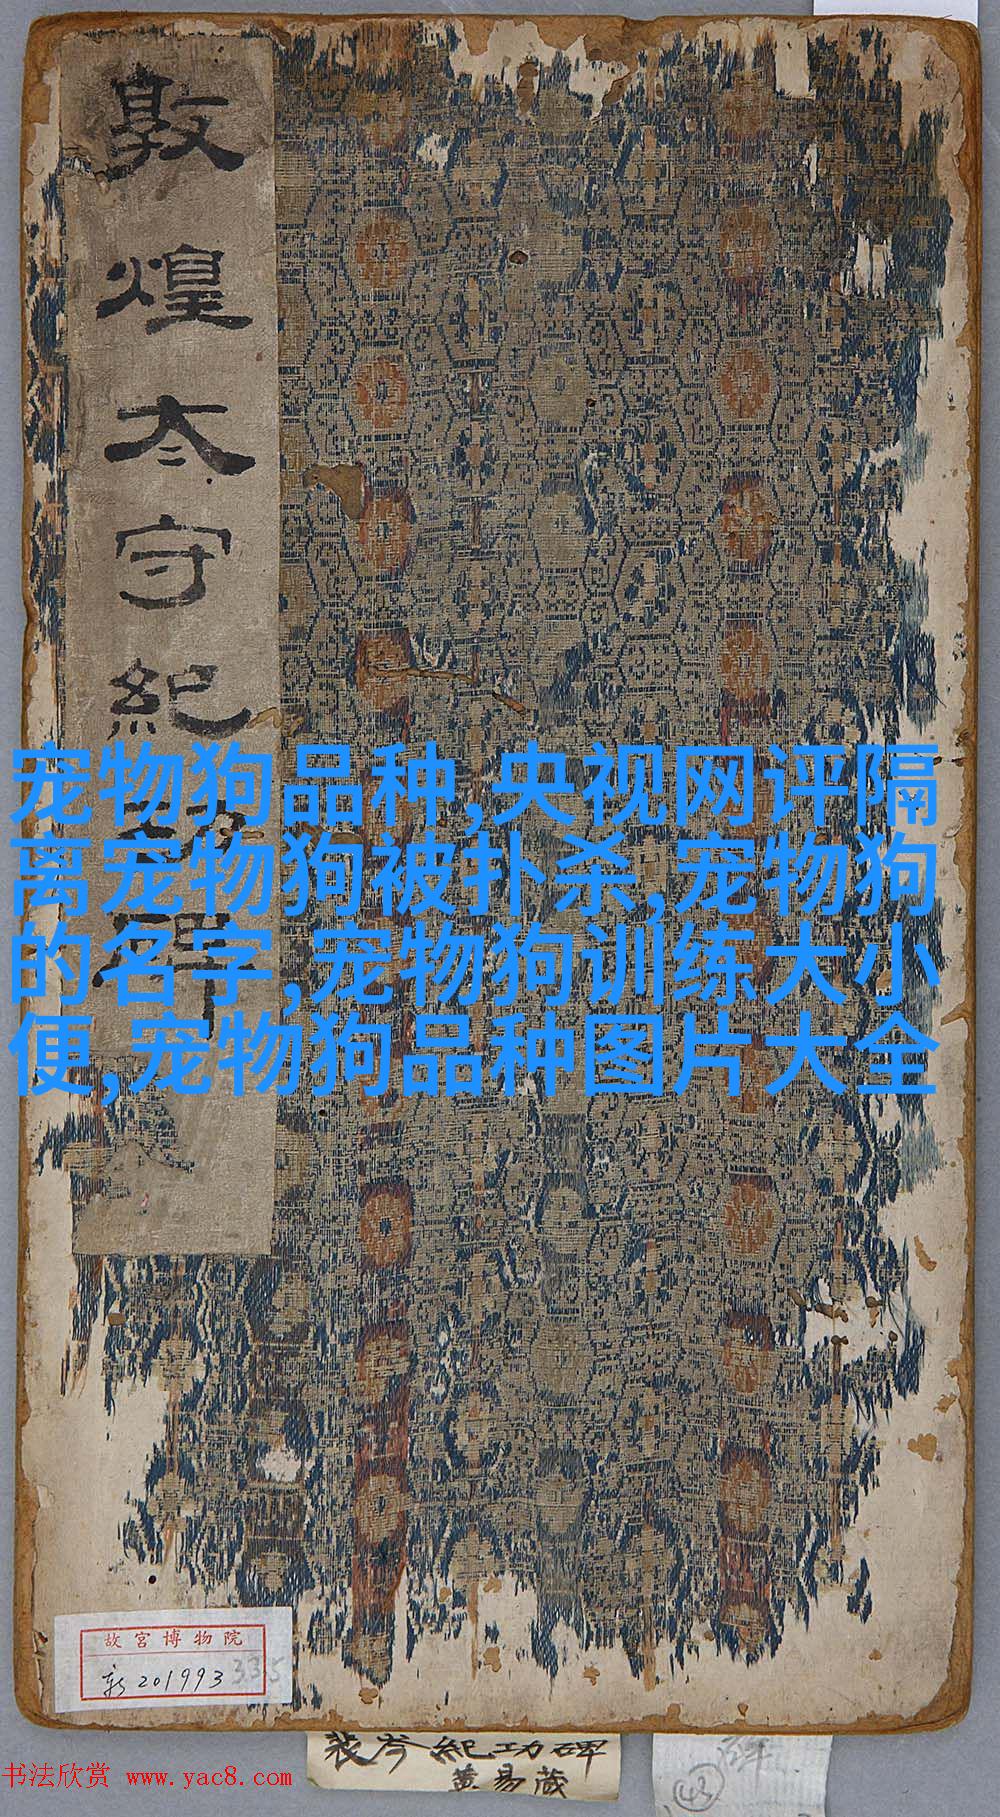 敦煌太守紀功碑
宠物狗品种,央视网评隔
离宠物狗被扑杀,宠物狗
的名字,宠物狗训练大小
便,宠物狗品种图片大全
故宮博物院
新201993
335
裴岑紀功碑
黄易藏
43
书法欣赏 www.yac8.com